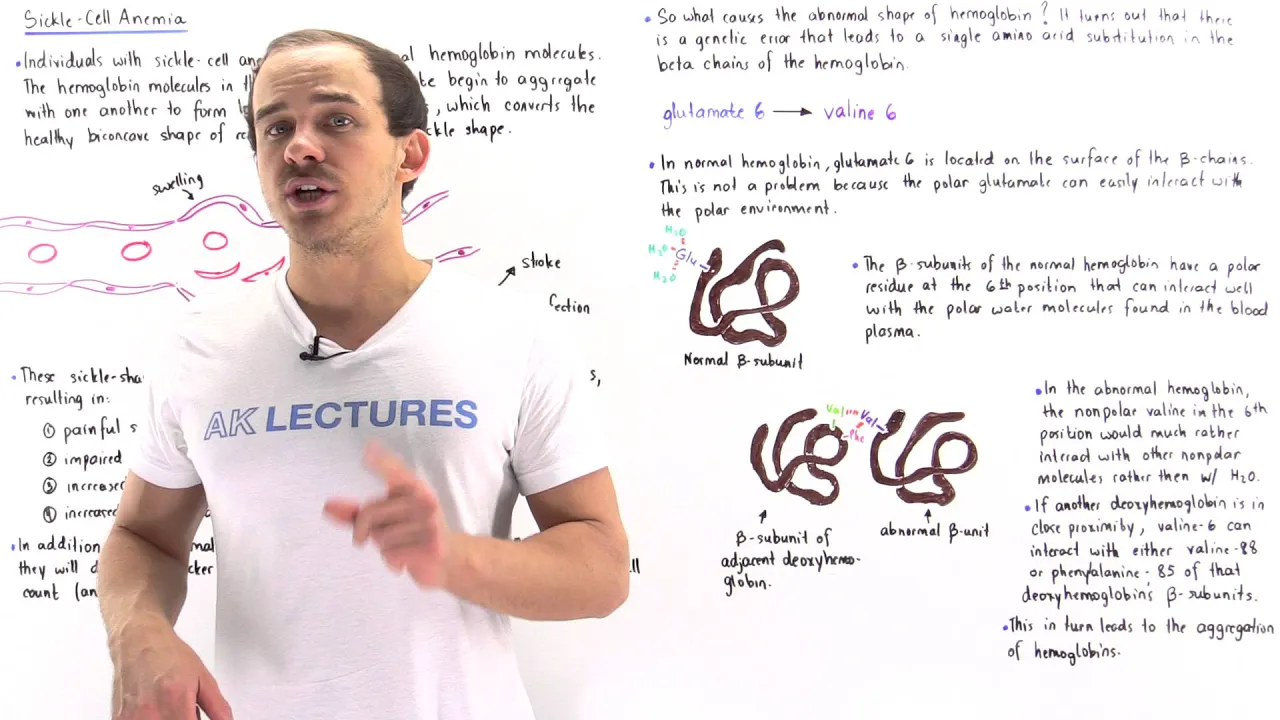 Sickle-Cell Anemia
• Individuals with sickle-cell hemoglobin molecules.
The hemoglobin molecules in begin to aggregate
with one another to form , which converts the
healthy biconcave shape of shape.
swelling
stroke
• These sickle-sha s,
resulting in:
① painful s
② impaired
③ increased
④ increased
• In addition
they will
count
AK LECTURES
• So what causes the abnormal shape of hemoglobin? It turns out that there
is a genetic error that leads to a single amino acid substitution in the
beta chains of the hemoglobin.
glutamate 6 → valine 6
• In normal hemoglobin, glutamate 6 is located on the surface of the β-chains.
This is not a problem because the polar glutamate can easily interact with
the polar environment.
H₂O
H₂O Glu
H₂O
Normal β-subunit
• The β-subunits of the normal hemoglobin have a polar
residue at the 6th position that can interact well
with the polar water molecules found in the blood
plasma.
Val Val
Phe
β-subunit of
adjacent deoxyhemo-
globin.
abnormal β-unit
• In the abnormal hemoglobin,
the nonpolar valine in the 6th
position would much rather
interact with other nonpolar
molecules rather then w/ H₂O.
• If another deoxyhemoglobin is in
close proximity, valine-6 can
interact with either valine-88
or phenylalanine-85 of that
deoxyhemoglobin's β-subunits.
• This in turn leads to the aggregation
of hemoglobins.